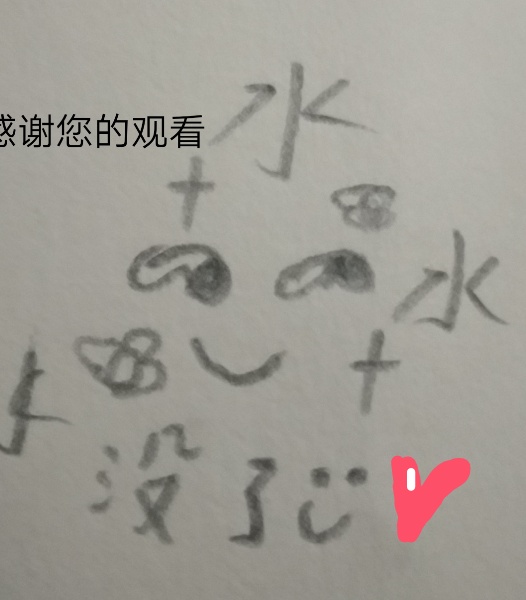 感谢您的观看
水
水
水
没了